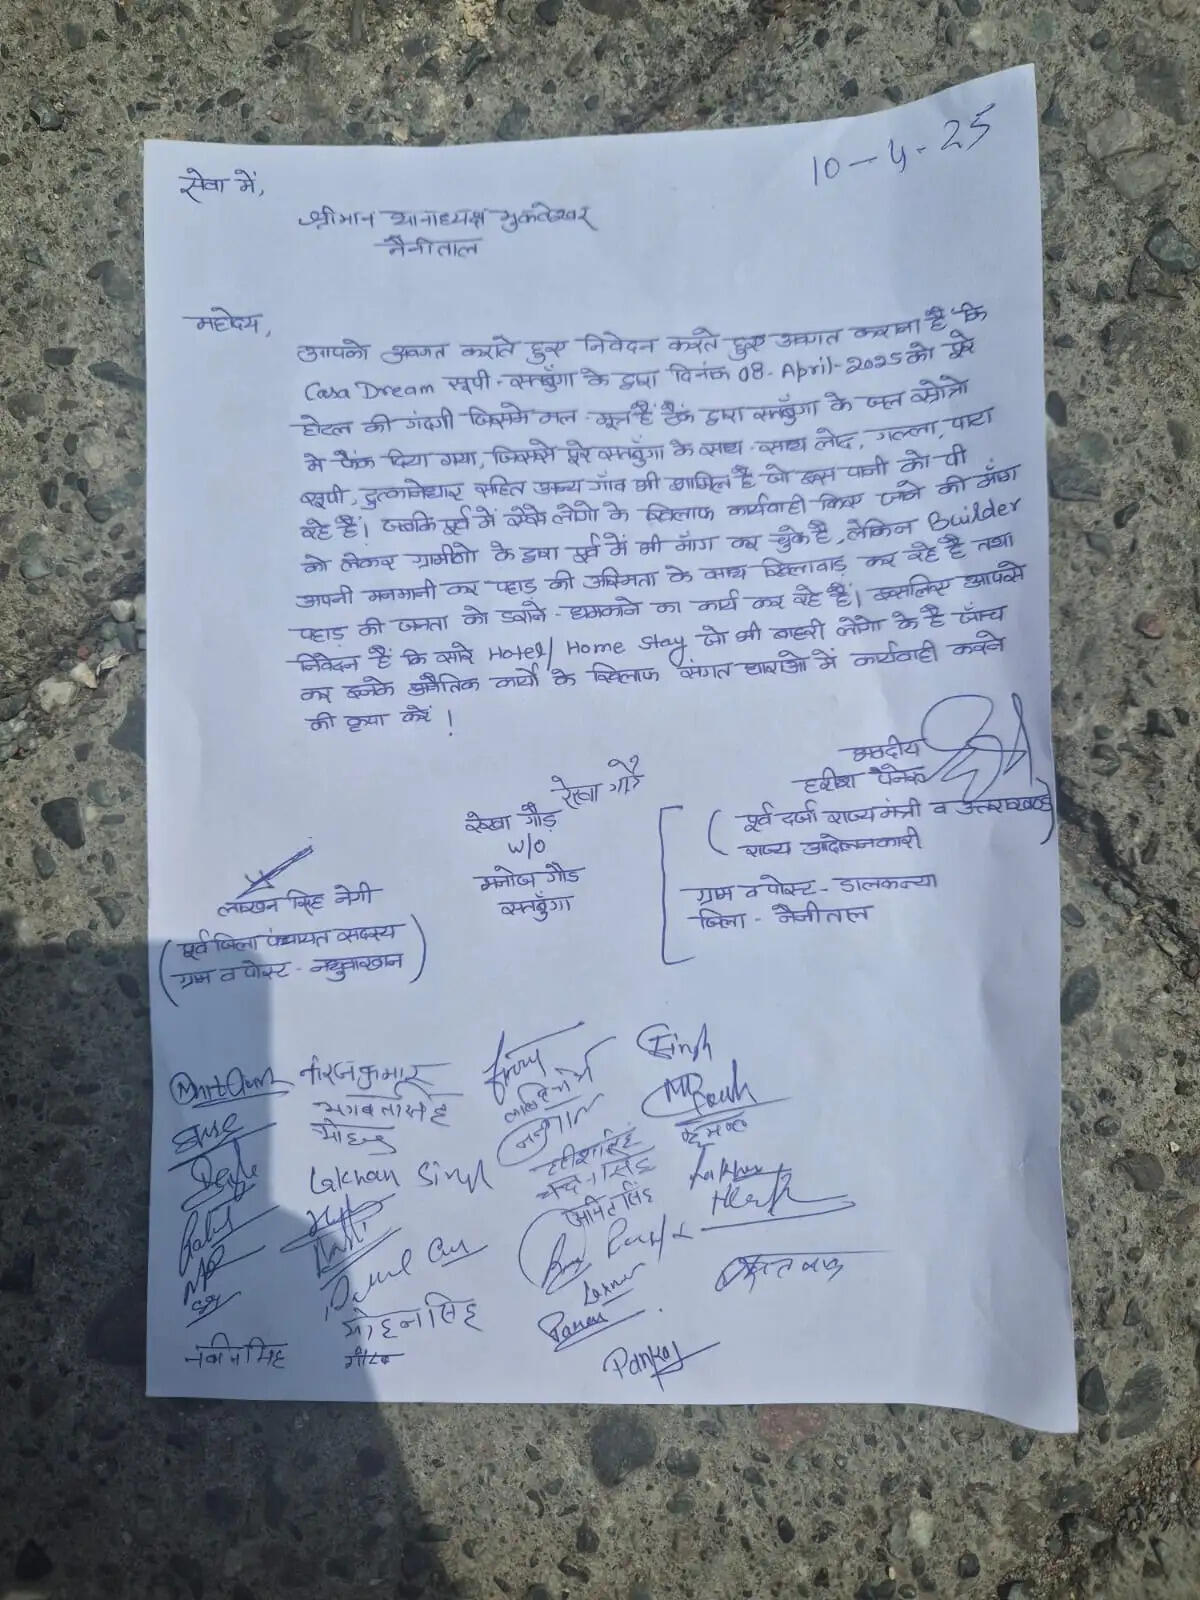 10-4-25
सेवा में,
श्रीमान थानाध्यक्ष मुक्तेश्वर
नैनीताल
महोदय,
आपको अवगत कराते हुए निवेदन करते हुए अवगत कराना है कि
Casa Dream सूपी - सतबुँगा के द्वारा दिनांक 08-April-2025 को पूरे
होटल की गंदगी जिसमे मल-मूत्र है टैंक द्वारा सतबुँगा के जल स्रोतो
मे फैंक दिया गया, जिससे पूरे सतबुँगा के साथ-साथ लोद, गल्ला, पाटा
सूपी, दुत्कानेधार सहित अन्य गाँव भी शामिल है जो इस पानी को पी
रहे हैं। जबकि पूर्व में ऐसे लोगो के खिलाफ कार्यवाही किए जाने की माँग
को लेकर ग्रामीणो के द्वारा पूर्व में भी माँग कर चुके है, लेकिन Builder
अपनी मनमानी कर पहाड़ की अस्मिता के साथ खिलावाड़ कर रहे है तथा
पहाड़ की जनता को डराने-धमकाने का कार्य कर रहे हैं। इसलिए आपसे
निवेदन है कि सारे Hotel/Home Stay जो भी बाहरी लोगो के है जाँच
कर इनके अनैतिक कार्यो के खिलाफ संगत धाराओ में कार्यवाही करने
की कृपा करें!
भवदीय
हरीश पनेरू
(पूर्व दर्जा राज्य मंत्री व उत्तराखण्ड
राज्य आंदोलनकारी)
ग्राम व पोस्ट - डालकन्या
जिला - नैनीताल
रेखा गौड़
रेखा गौड़
W/O
मनोज गौड
सतबुँगा
लाखन सिंह नेगी
(पूर्व जिला पंचायत सदस्य
ग्राम व पोस्ट - नथुवाखान)
नीरज कुमार
Singh
भगवत सिंह
मोहन
Lakhan Singh
हरीश सिंह
चन्दन सिंह
अमित सिंह
मोहन सिंह
नवीन सिंह
Pankaj